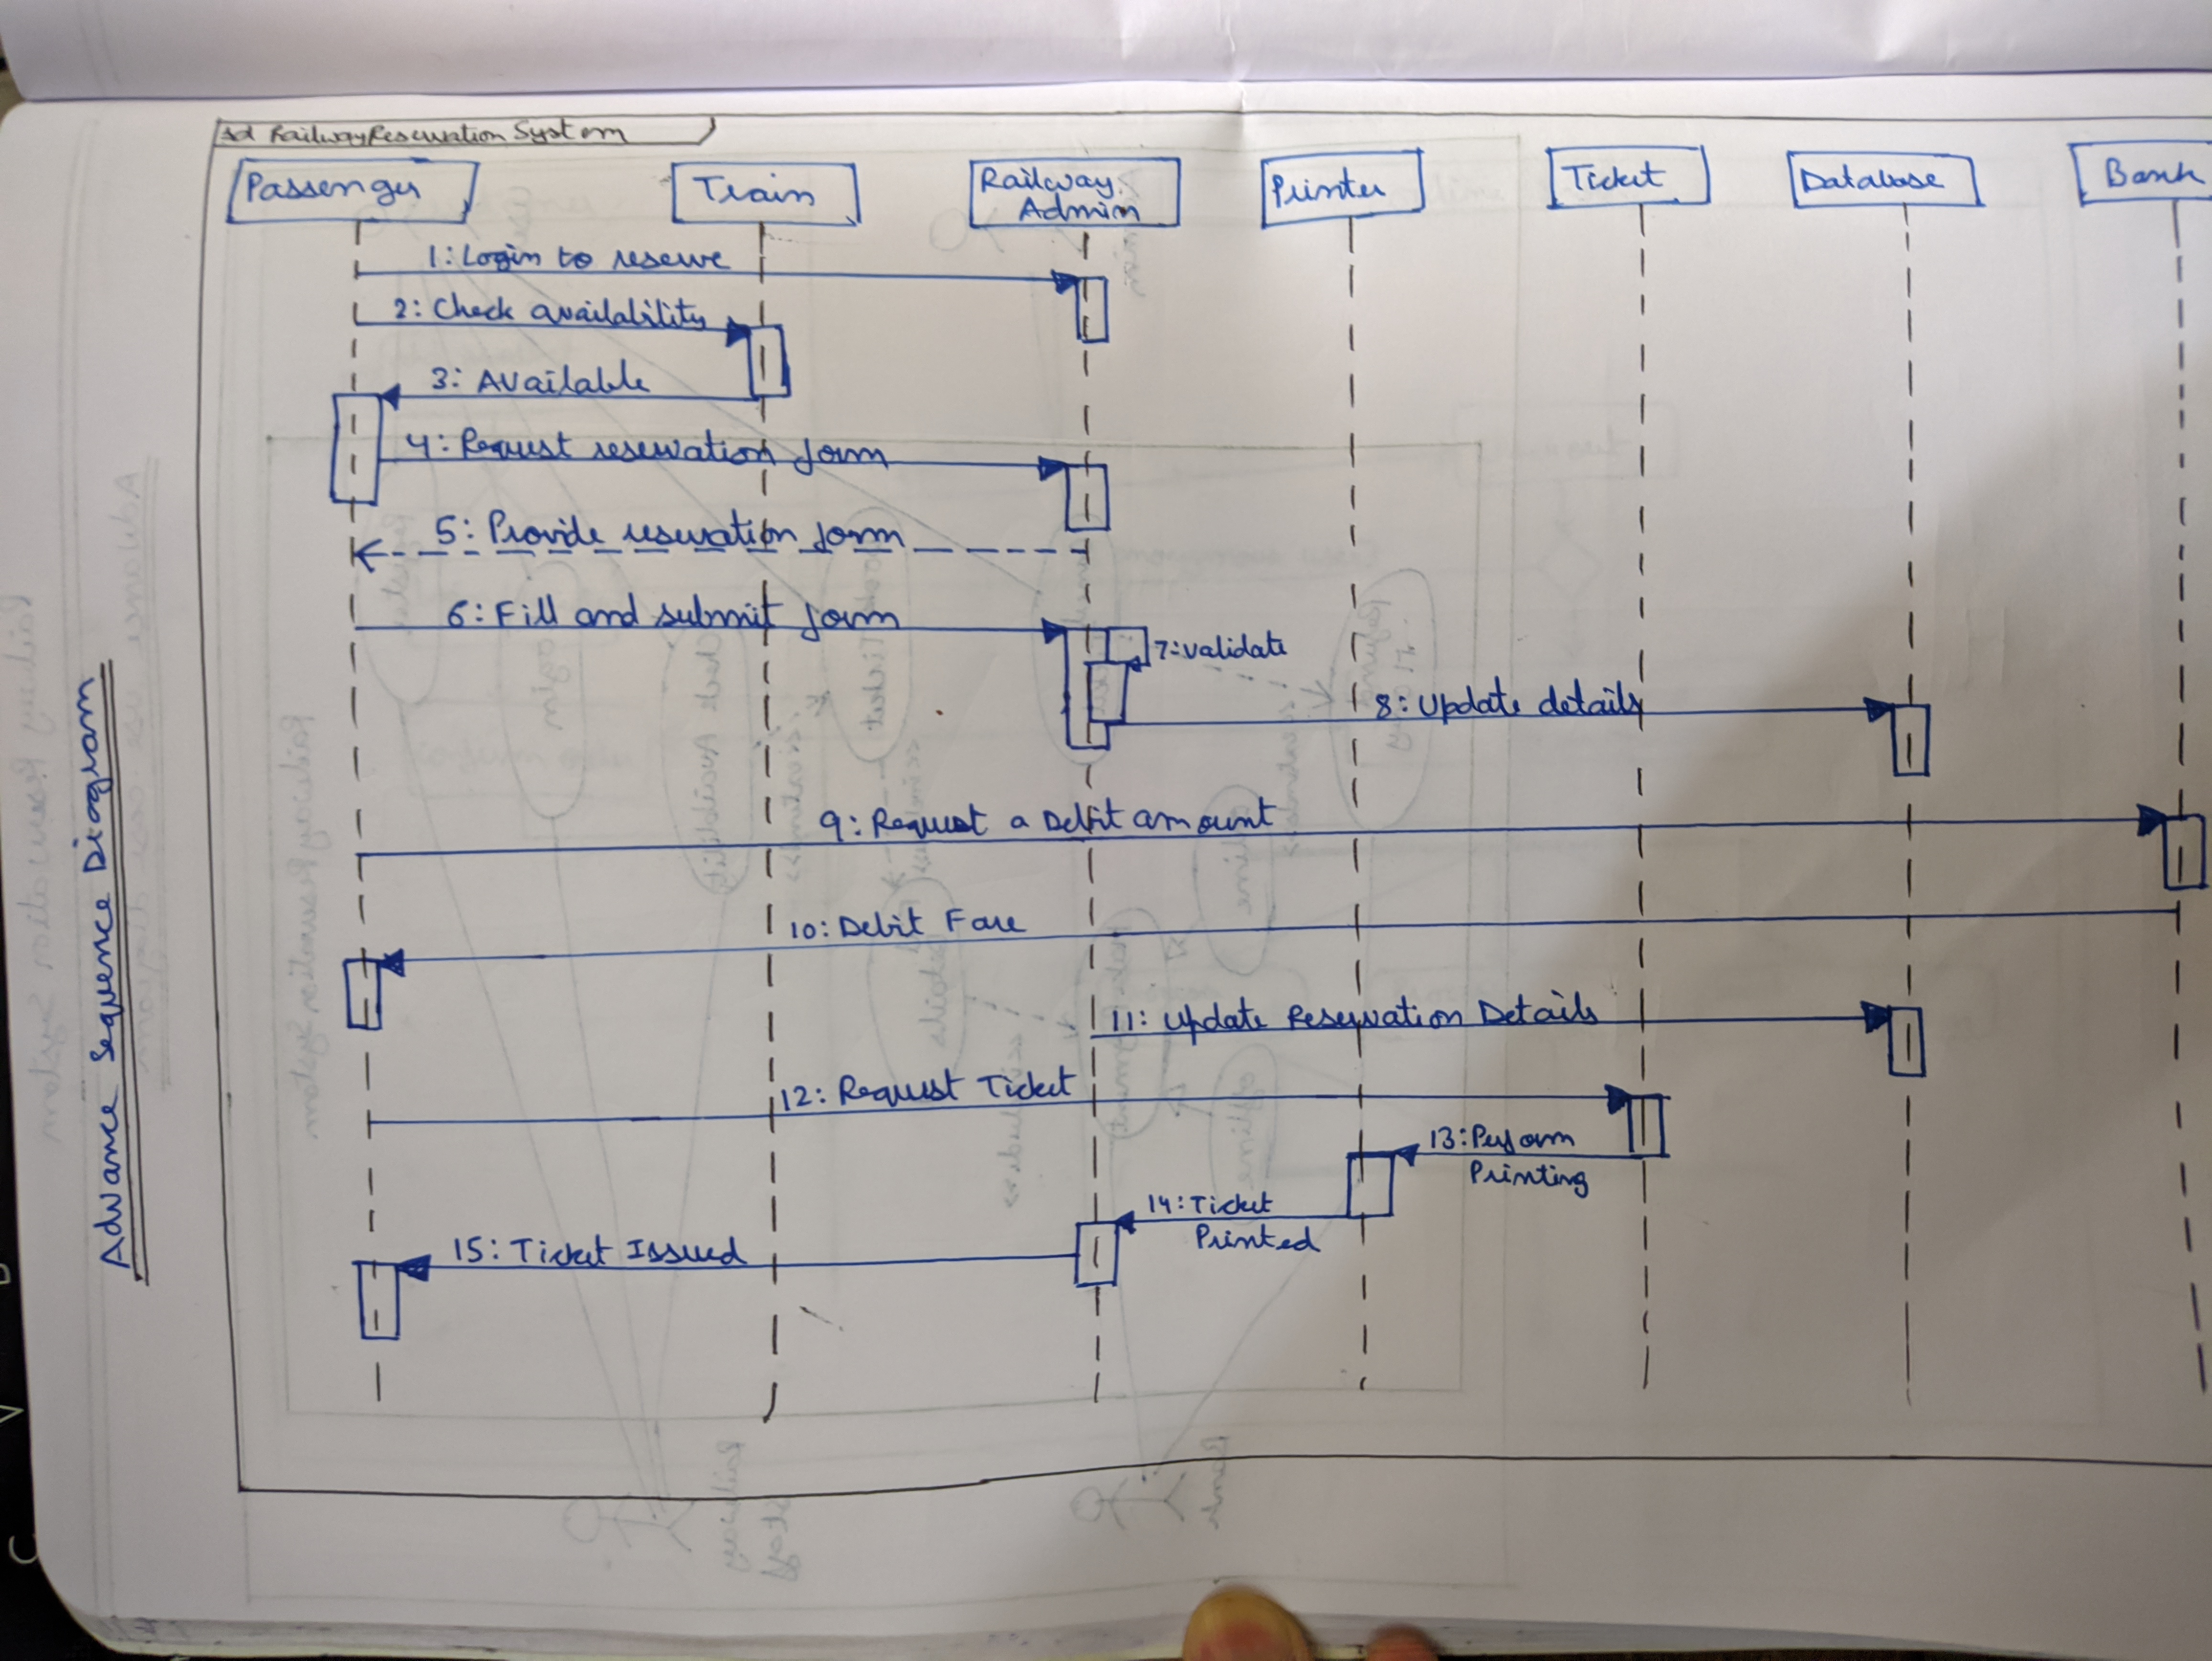 sd RailwayReservation System
Passenger
Train
Railway
Admin
Printer
Ticket
Database
Bank
1: Login to reserve
2: Check availability
3: Available
4: Request reservation form
5: Provide reservation form
6: Fill and submit form
7: validate
8: Update details
9: Request a Debit amount
10: Debit Fare
11: Update Reservation Details
12: Request Ticket
13: Perform
Printing
14: Ticket
Printed
15: Ticket Issued
Advance Sequence Diagram